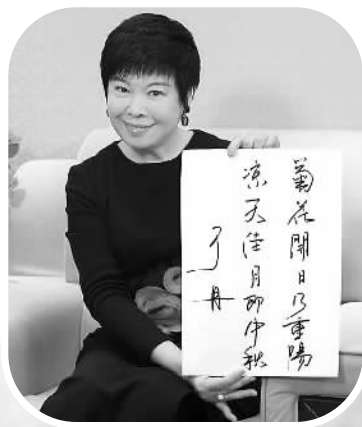 菊花開日乃重陽
凉天佳月即中秋
于丹